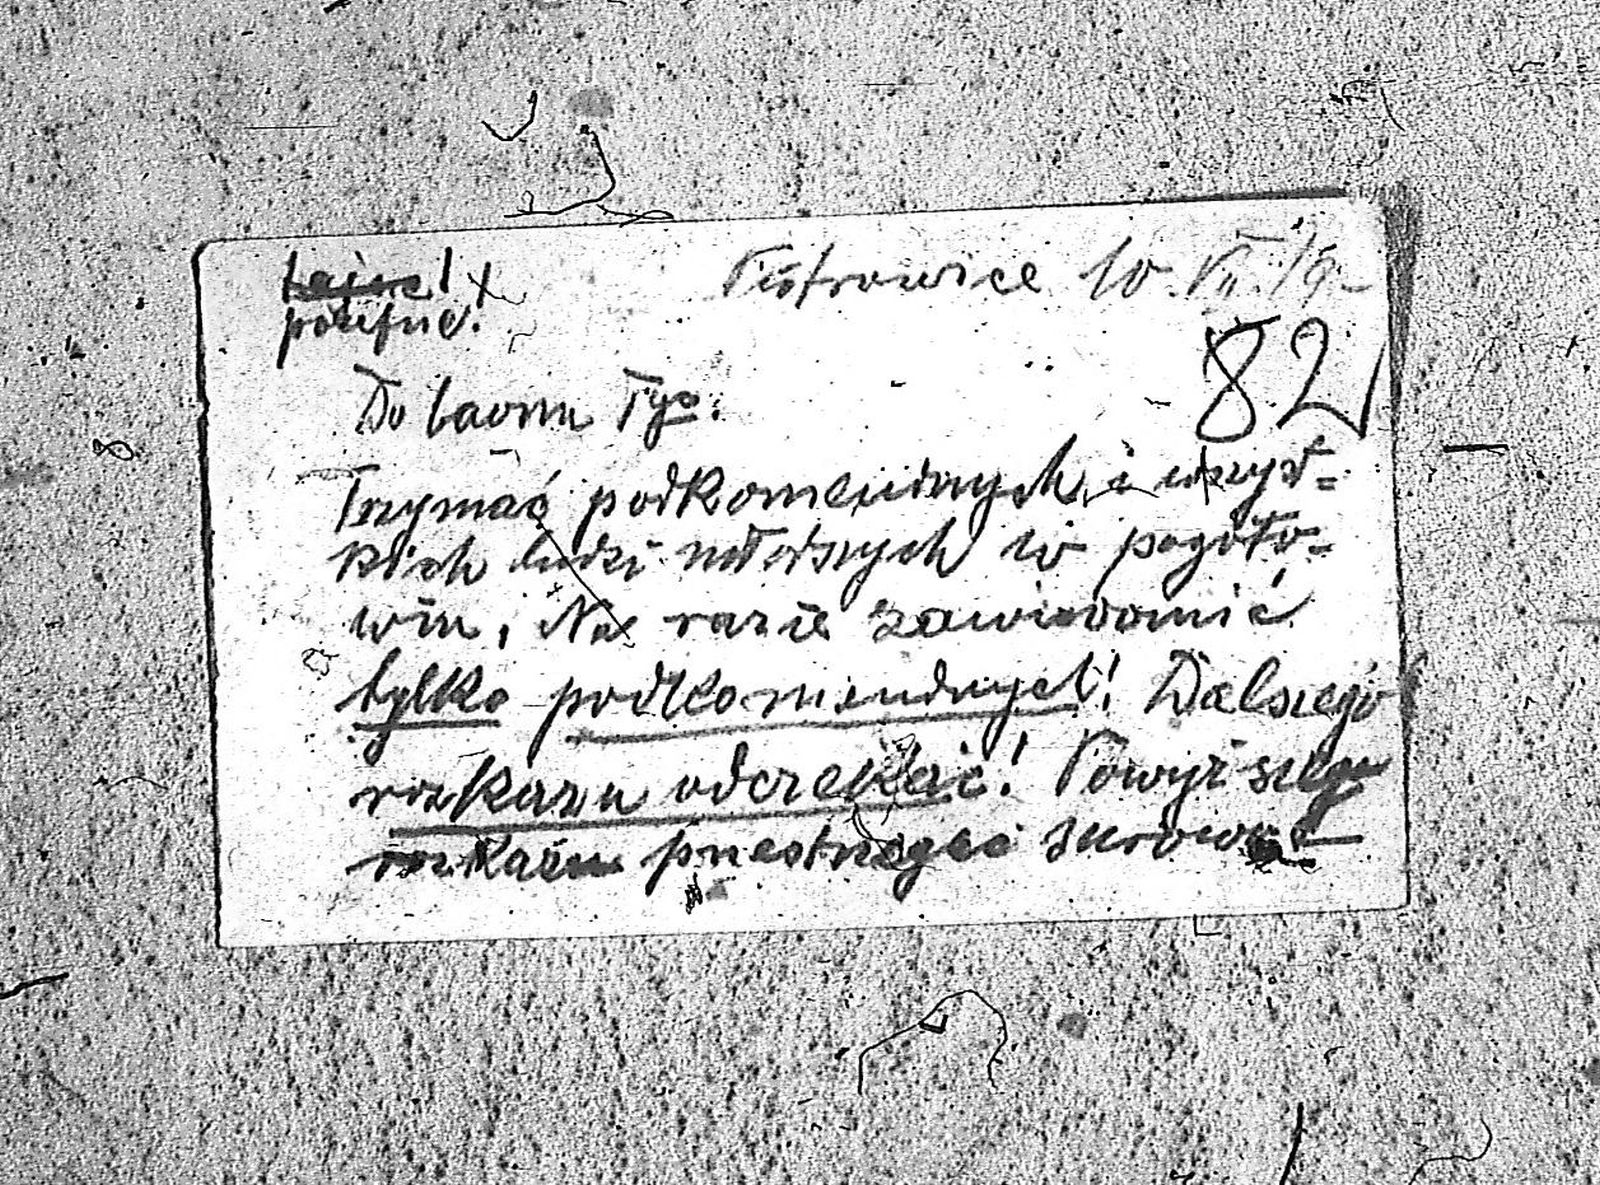 tajne!
poufne!
Piotrowice 10. VII. 19.
82
Do baonu Tys.
Trzymać podkomendnych i wszyst=
kich ludzi młodszych w pogoto=
wiu, Na razie zawiadomić
tylko podkomendnych! Dalszego
rozkazu odczekać! Powyższego
rozkazu przestrzegać surowo